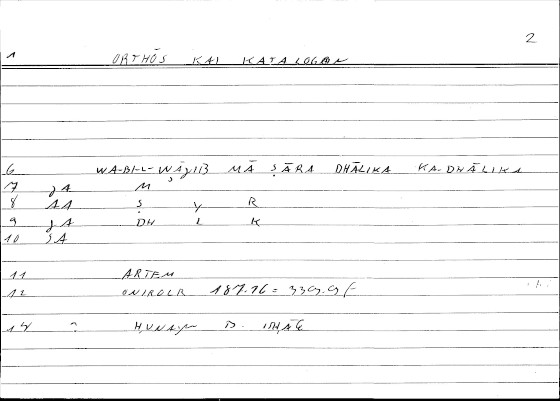 2
1 ORTHŌS KAI KATA LOGON
6 WA-BI-L-WĀǧIB MĀ ṢĀRA DHĀLIKA KA-DHĀLIKA
7 JA M
8 AA Ṣ Y R
9 JA DH L K
10 JA
11 ARTEM
12 ONIROCR 187.16 = 339.9 F
14 ? ḤUNAYN B. ISḤĀQ